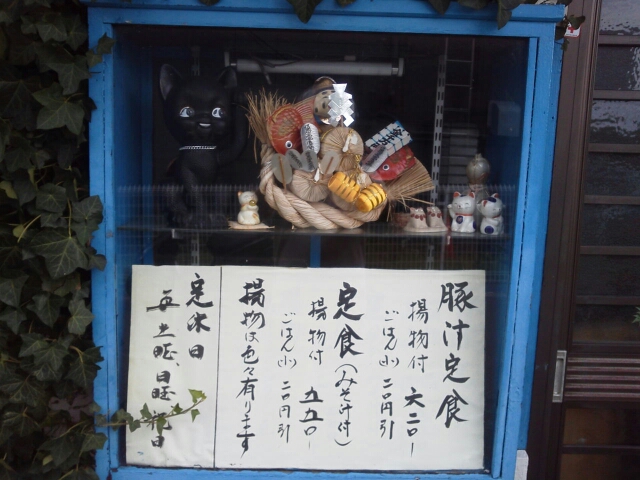 豚汁定食
揚物付 六二〇ー
ごはん(小)二〇円引
定食(みそ汁付)
揚物付 五五〇ー
ごはん(小)二〇円引
揚物は色々有ります
定休日
毎土旺、日旺、祝日